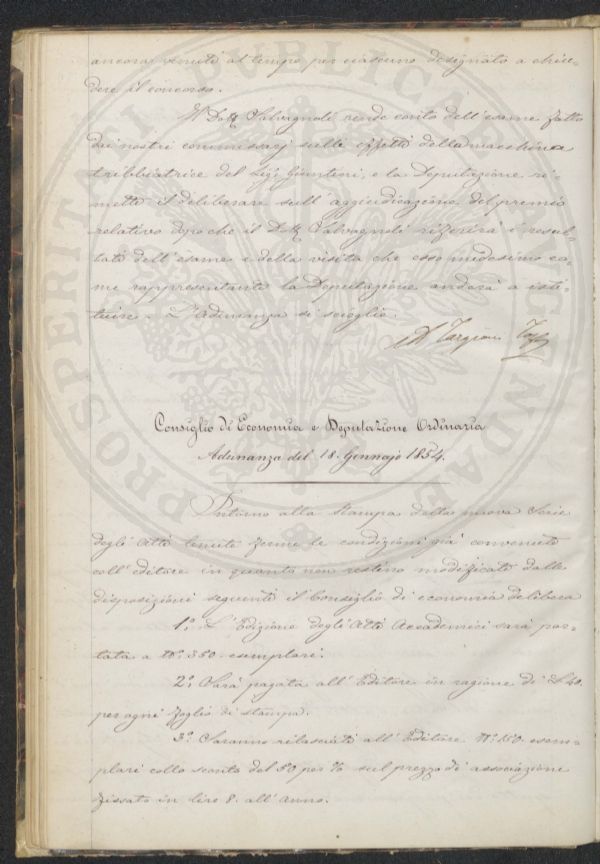 ancora venuti al tempo per ciascuno designato a chiu-
dere il concorso.
Il Dott Salvagnoli rende conto dell'esame fatto
dai nostri commissarj sulli effetti della macchina
tribbiatrice del Sigr Giuntini, e la Deputazione ri-
mette il deliberare sull'aggiudicazione del premio
relativo dopo che il Dott Salvagnoli riferirà i resul-
tati dell'esame e della visita che esso medesimo co-
me rappresentante la Deputazione anderà a isti-
tuire. L'Adunanza si scioglie.
Targioni
Consiglio di Economia e Deputazione Ordinaria
Adunanza del 18. Gennajo 1854.
Intorno alla stampa della nuova Serie
degli Atti tenute ferme le condizioni già convenute
coll'editore in quanto non restino modificate dalle
disposizioni seguenti il Consiglio di economia delibera
1º. L'Edizione degli Atti Accademici sarà por-
tata a Nº. 350 esemplari.
2º. Sarà pagata all'Editore in ragione di £ 40.
per ogni foglio di stampa.
3º. Saranno rilasciati all'Editore Nº. 150 esem-
plari collo sconto del 50 per % sul prezzo di associazione
fissato in lire 8. all'anno.
PROSPERITATI PUBLICAE AUGENDAE